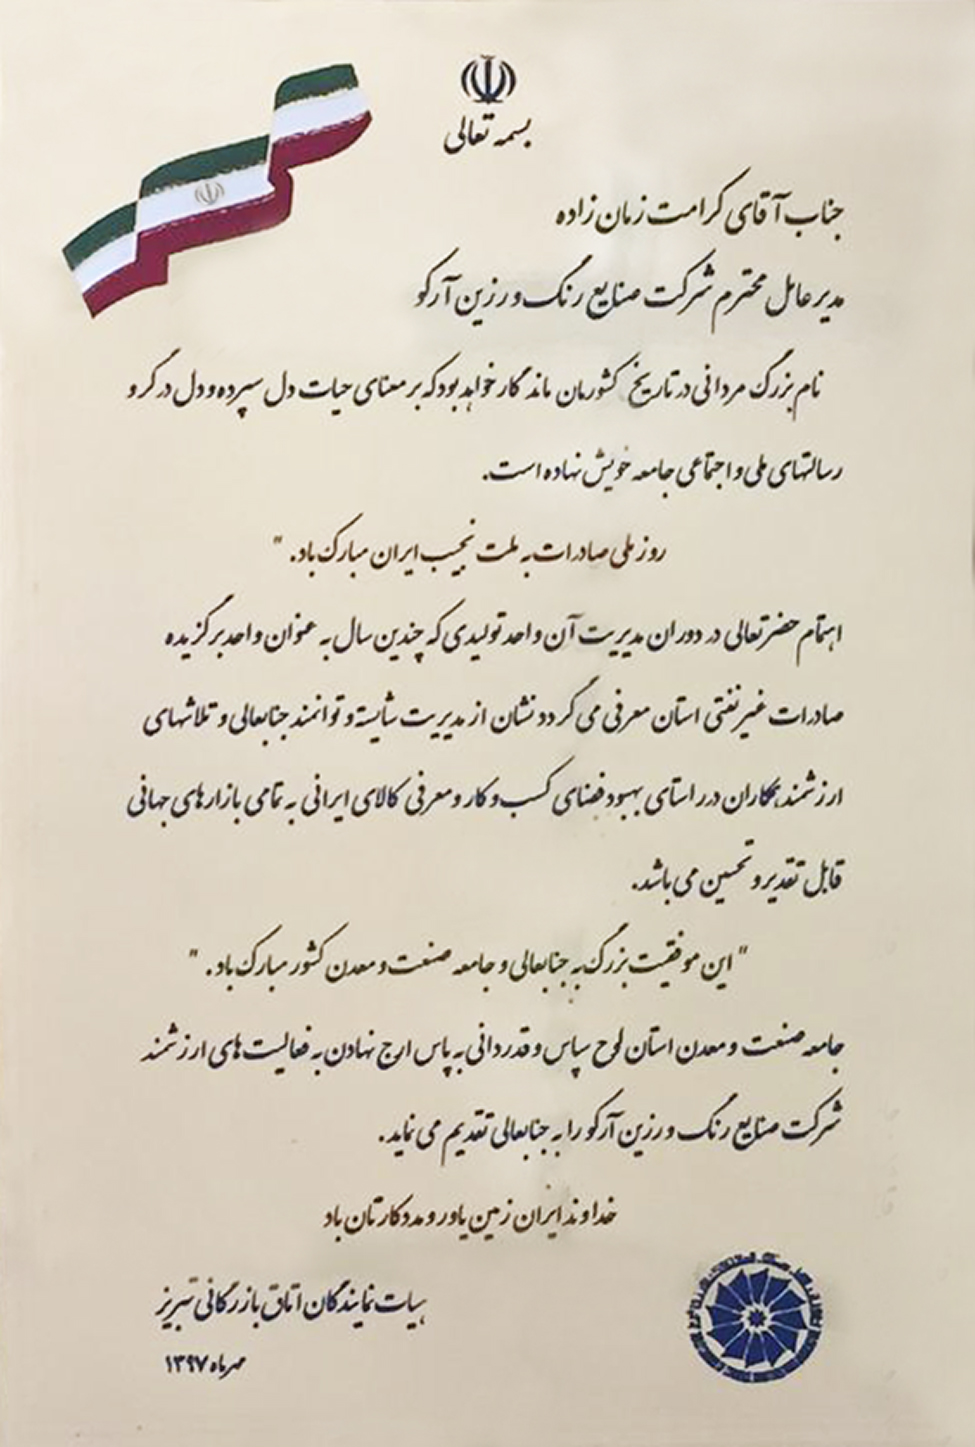 بسمه تعالی
جناب آقای کرامت زمان زاده
مدیر عامل محترم شرکت صنایع رنگ و رزین آرکو
نام بزرگ مردانی در تاریخ کشورمان ماندگار خواهد بود که بر معنای حیات دل سپرده و دل در گرو
رسالتهای ملی و اجتماعی جامعه خویش نهاده است.
روز ملی صادرات به ملت نجیب ایران مبارک باد. "
اهتمام حضرتعالی در دوران مدیریت آن واحد تولیدی که چندین سال به عنوان واحد برگزیده
صادرات غیر نفتی استان معرفی می گردد نشان از مدیریت شایسته و توانمند جنابعالی و تلاشهای
ارزشمند همکاران در راستای بهبود فضای کسب و کار و معرفی کالای ایرانی به تمامی بازارهای جهانی
قابل تقدیر و تحسین می باشد.
" این موفقیت بزرگ به جنابعالی و جامعه صنعت و معدن کشور مبارک باد. "
جامعه صنعت و معدن استان لوح سپاس و قدردانی به پاس ارج نهادن به فعالیت های ارزشمند
شرکت صنایع رنگ و رزین آرکو را به جنابعالی تقدیم می نماید.
خداوند ایران زمین یاور و مددکارتان باد
هیات نمایندگان اتاق بازرگانی تبریز
مهرماه ۱۳۹۷